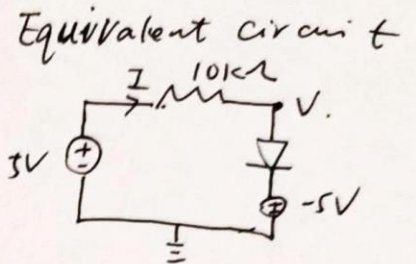 Equivalent circuit
I 10kΩ
V.
5V
-5V